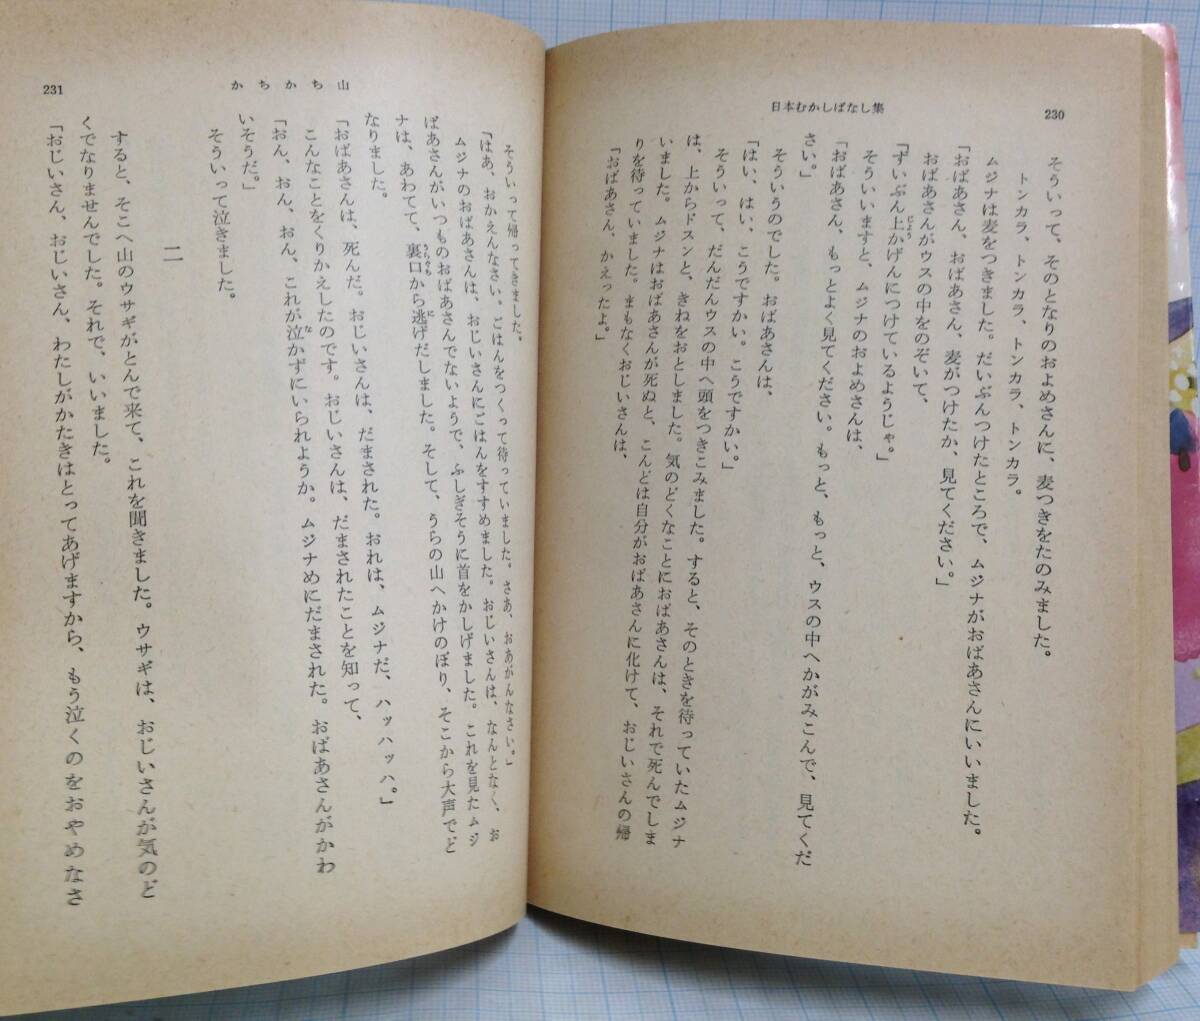 230
日本むかしばなし集
そういって、そのとなりのおよめさんに、麦つきをたのみました。
トンカラ、トンカラ、トンカラ、トンカラ。
ムジナは麦をつきました。だいぶんつけたところで、ムジナがおばあさんにいいました。
「おばあさん、おばあさん、麦がつけたか、見てください。」
おばあさんがウスの中をのぞいて、
「ずいぶん上かげんにつけているようじゃ。」
そういいますと、ムジナのおよめさんは、
「おばあさん、もっとよく見てください。もっと、もっと、ウスの中へかがみこんで、見てくだ
さい。」
そういうのでした。おばあさんは、
「はい、はい、こうですかい。こうですかい。」
そういって、だんだんウスの中へ頭をつきこみました。すると、そのときを待っていたムジナ
は、上からドスンと、きねをおとしました。気のどくなことにおばあさんは、それで死んでしま
いました。ムジナはおばあさんが死ぬと、こんどは自分がおばあさんに化けて、おじいさんの帰
りを待っていました。まもなくおじいさんは、
「おばあさん、かえったよ。」
かちかち山
231
そういって帰ってきました。
「はあ、おかえんなさい。ごはんをつくって待っていました。さあ、おあがんなさい。」
ムジナのおばあさんは、おじいさんにごはんをすすめました。おじいさんは、なんとなく、お
ばあさんがいつものおばあさんでないようで、ふしぎそうに首をかしげました。これを見たムジ
ナは、あわてて、裏口から逃げだしました。そして、うらの山へかけのぼり、そこから大声でど
なりました。
「おばあさんは、死んだ。おじいさんは、だまされた。おれは、ムジナだ、ハッハッハ。」
こんなことをくりかえしたのです。おじいさんは、だまされたことを知って、
「おん、おん、おん、これが泣かずにいられようか。ムジナめにだまされた。おばあさんがかわ
いそうだ。」
そういって泣きました。
二
すると、そこへ山のウサギがとんで来て、これを聞きました。ウサギは、おじいさんが気のど
くでなりませんでした。それで、いいました。
「おじいさん、おじいさん、わたしがかたきはとってあげますから、もう泣くのをおやめなさ